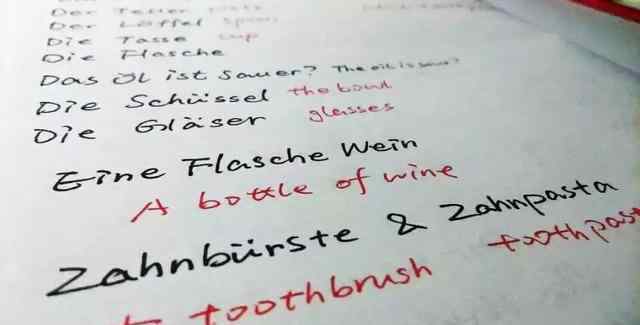 Der Teller plate
Der Löffel spoon
Die Tasse cup
Die Flasche
Das Öl ist Sauer? The oil is sour?
Die Schüssel the bowl
Die Gläser glasses
Eine Flasche Wein
A bottle of wine
Zahnbürste & Zahnpasta
toothbrush toothpast